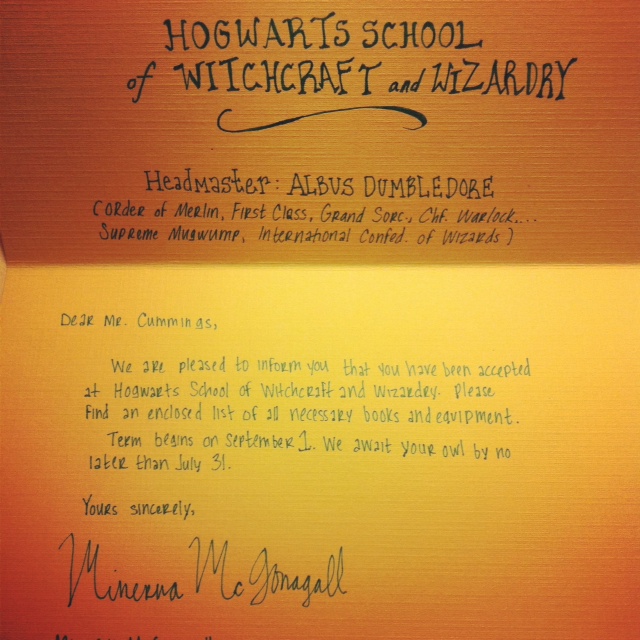 HOGWARTS SCHOOL
of WITCHCRAFT and WIZARDRY
Headmaster: ALBUS DUMBLEDORE
(Order of Merlin, First Class, Grand Sorc., Chf. Warlock,...
Supreme Mugwump, International Confed. of Wizards)
Dear Mr. Cummings,
We are pleased to inform you that you have been accepted
at Hogwarts School of Witchcraft and Wizardry. Please
find an enclosed list of all necessary books and equipment.
Term begins on September 1. We await your owl by no
later than July 31.
Yours sincerely,
Minerva McGonagall